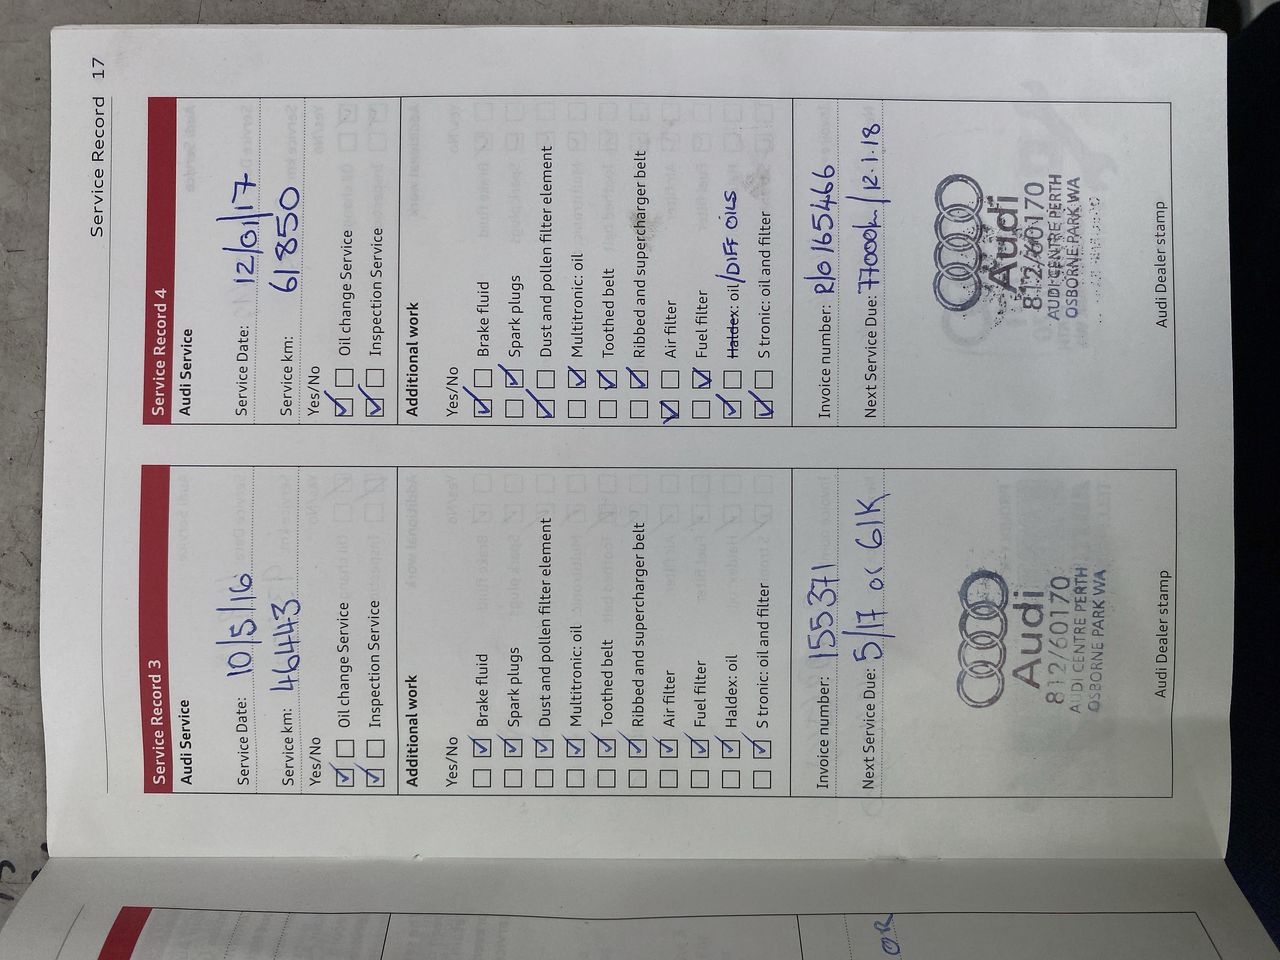 Service Record 17
Service Record 3
Audi Service
Service Date: 10/5/16
Service km: 46443
Yes/No
Oil change Service
Inspection Service
Additional work
Yes/No
Brake fluid
Spark plugs
Dust and pollen filter element
Multitronic: oil
Toothed belt
Ribbed and supercharger belt
Air filter
Fuel filter
Haldex: oil
S tronic: oil and filter
Invoice number: 155371
Next Service Due: 5/17 or 61K
Audi
812/60170
AUDI CENTRE PERTH
OSBORNE PARK WA
Audi Dealer stamp
Service Record 4
Audi Service
Service Date: 12/01/17
Service km: 61850
Yes/No
Oil change Service
Inspection Service
Additional work
Yes/No
Brake fluid
Spark plugs
Dust and pollen filter element
Multitronic: oil
Toothed belt
Ribbed and supercharger belt
Air filter
Fuel filter
Haldex: oil/DIFF OILS
S tronic: oil and filter
Invoice number: R/O 165466
Next Service Due: 77000km/12.1.18
Audi
812/60170
AUDI CENTRE PERTH
OSBORNE PARK WA
Audi Dealer stamp
OR